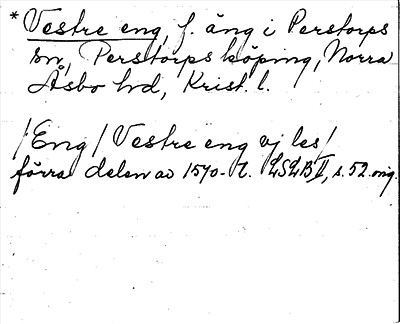 * Vestre eng, f. äng i Perstorps
sn, Perstorps köping, Norra
Åsbo hd, Krist. l.
/Eng/ Vestre eng vj les/
förra delen av 1570-t. LSLB II, s. 52. orig.